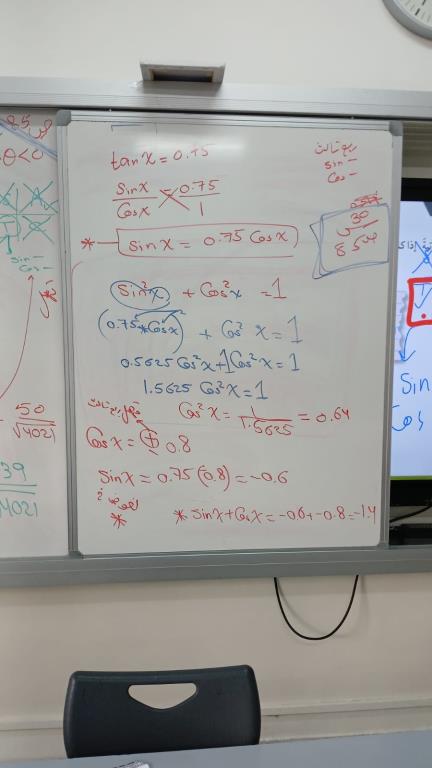 tan x = 0.75
sin x / cos x = 0.75 / 1
* sin x = 0.75 cos x
ربع ثالث
sin -
cos -
30
ص 85
sin²x + cos²x = 1
(0.75 * cos x)² + cos²x = 1
0.5625 cos²x + 1 cos²x = 1
1.5625 cos²x = 1
cos²x = 1 / 1.5625 = 0.64
cos x = ± 0.8
sin x = 0.75 (0.8) = -0.6
*
* sin x + cos x = -0.6 + -0.8 = -1.4
θ<0
sin -
cos -
50 / √4021
39 / √4021
Sin
Cos